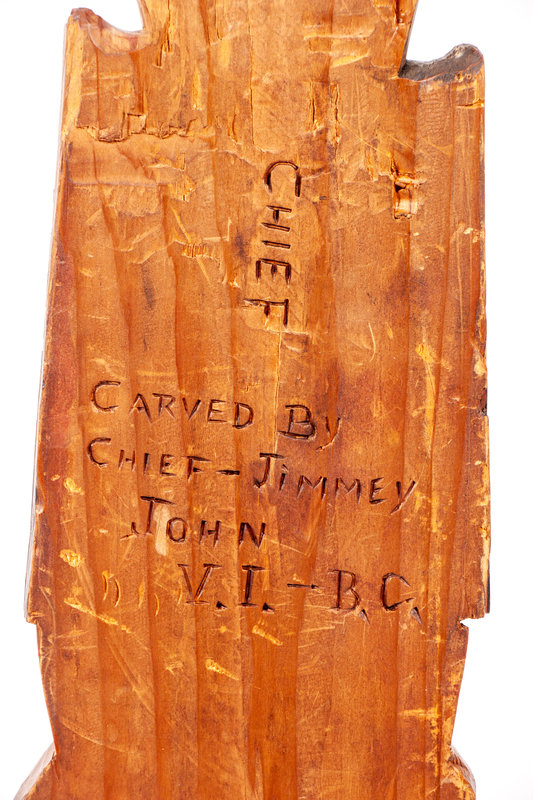 CHIEF
CARVED By
CHIEF-JIMMEY
JOHN
V.I.-B.C.